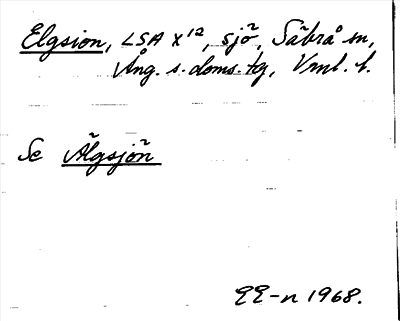 Elgsion, LSA X¹², sjö, Säbrå sn,
Ång. s. doms. tg, Vrnl. l.
Se Älgsjön
EE-n 1968.